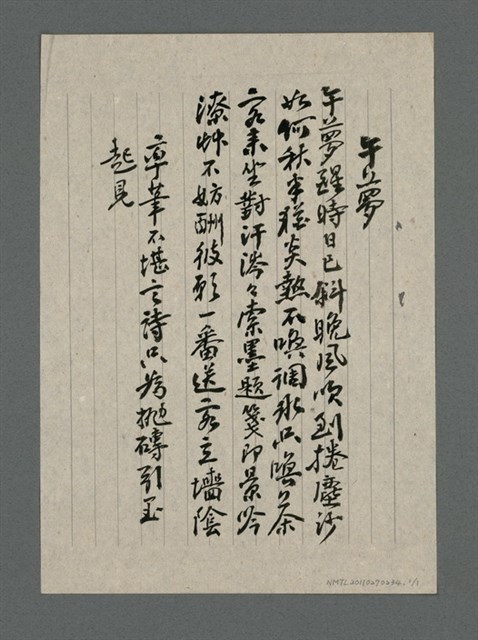 午夢
午夢醒時日已斜晚風吹到捲塵沙
如何秋來猶炎熱不喚調冰只喚茶
客來坐對汗涔々索墨題箋即景吟
潦艸不妨酬彼願一番送客立墻陰
草草不堪言詩只為拋磚引玉
起見
NMTL20110270294, 1/1